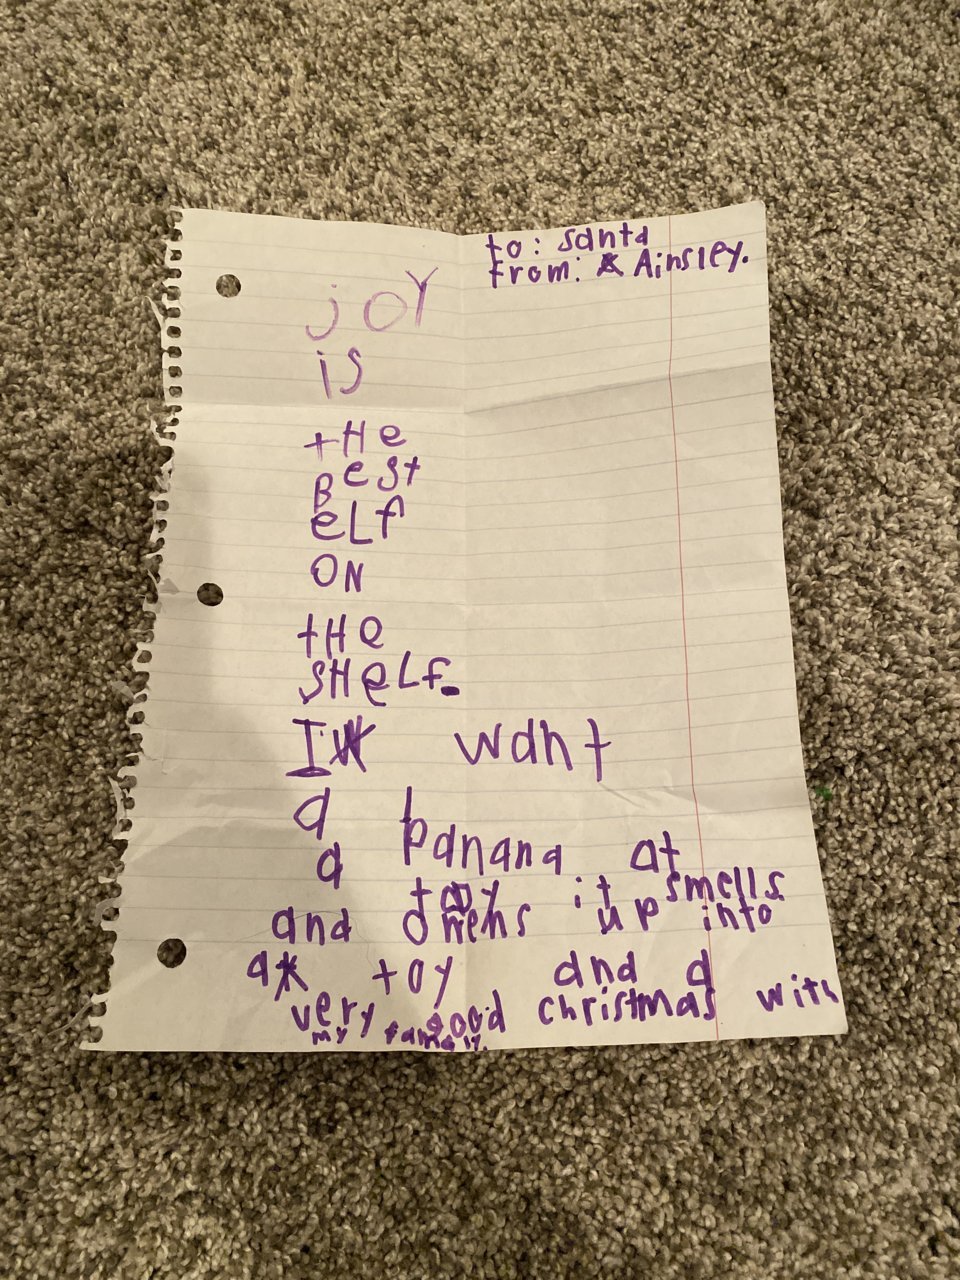 to: santa
from: Ainsley.
joY
is
tHe
Best
eLf
ON
tHe
SHeLf.
I want
a banana at
a toy it smells
and opens up into
a toy and a
very good christmas with
my family.